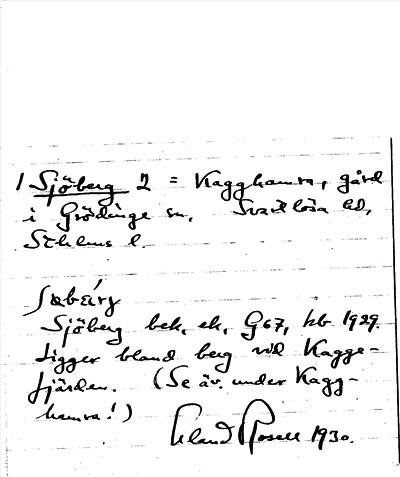 1 Sjöberg 2 = Kagghamra, gård
i Grödinge sn, Svartlösa hd,
Sthlms l.
Sjöberg bek, ek, G67, kb 1929.
Ligger bland berg vid Kagge-
fjärden. (Se äv. under Kagg-
hamra!)
Erland Rosell 1930.